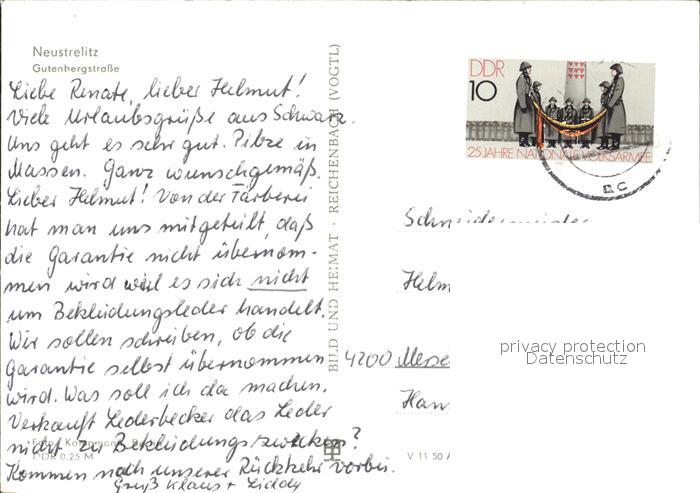 Neustrelitz
Gutenbergstraße
Liebe Renate, lieber Helmut!
Viele Urlaubsgrüße aus Schwarz.
Uns geht es sehr gut. Pilze in
Massen. Ganz wunschgemäß.
Lieber Helmut! Von der Färberei
hat man uns mitgeteilt, daß
die Garantie nicht übernom-
men wird weil es sich nicht
um Bekleidungsleder handelt.
Wir sollen schreiben, ob die
Garantie selbst übernommen
wird. Was soll ich da machen.
Verkauft Lederbecker das Leder
nicht zu Bekleidungszwecken?
Kommen nach unserer Rückkehr vorbei.
Gruß Klaus +
DDR 0,25 M
BILD UND HEIMAT · REICHENBACH (VOGTL)
DDR
10
25 JAHRE NATIONALE VOLKSARMEE
Schneidermeister
Helm
4200 Merse
Han
V 11 50 A
privacy protection
Datenschutz